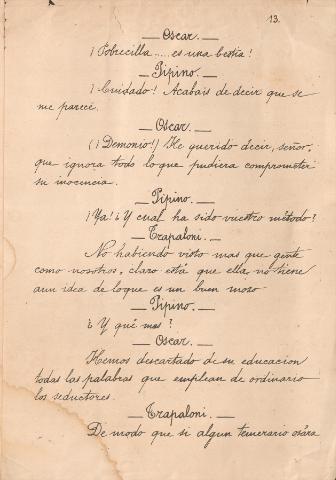 13.
— Oscar. —
¡Pobrecilla.....es una bestia!
— Pipino. —
¡Cuidado! Acabais de decir que se
me parece.
— Oscar. —
(¡Demonio!) He querido decir, señor,
que ignora todo loque pudiera comprometer
su inocencia.
— Pipino. —
¡Ya! ¿Y cual ha sido vuestro método?
— Trapaloni. —
No habiendo visto mas que gente
como nosotros, claro está que ella, no tiene
aun idea de loque es un buen mozo
— Pipino. —
¿Y qué mas?
— Oscar. —
Hemos descartado de su educacion
todas las palabras que emplean de ordinario
los seductores.
— Trapaloni. —
De modo que si algun temerario osára